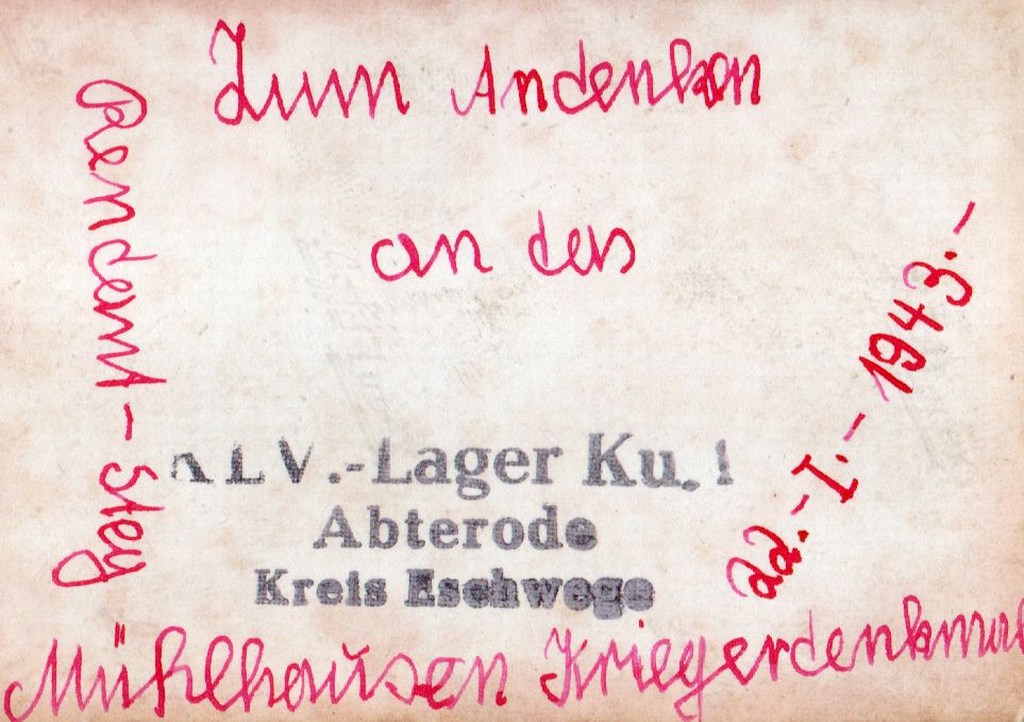 Zum Andenken
an das
K.L.V.-Lager Ku. 1
Abterode
Kreis Eschwege
Rendant-Steg
22.-I.-1943.-
Mühlhausen Kriegerdenkmal